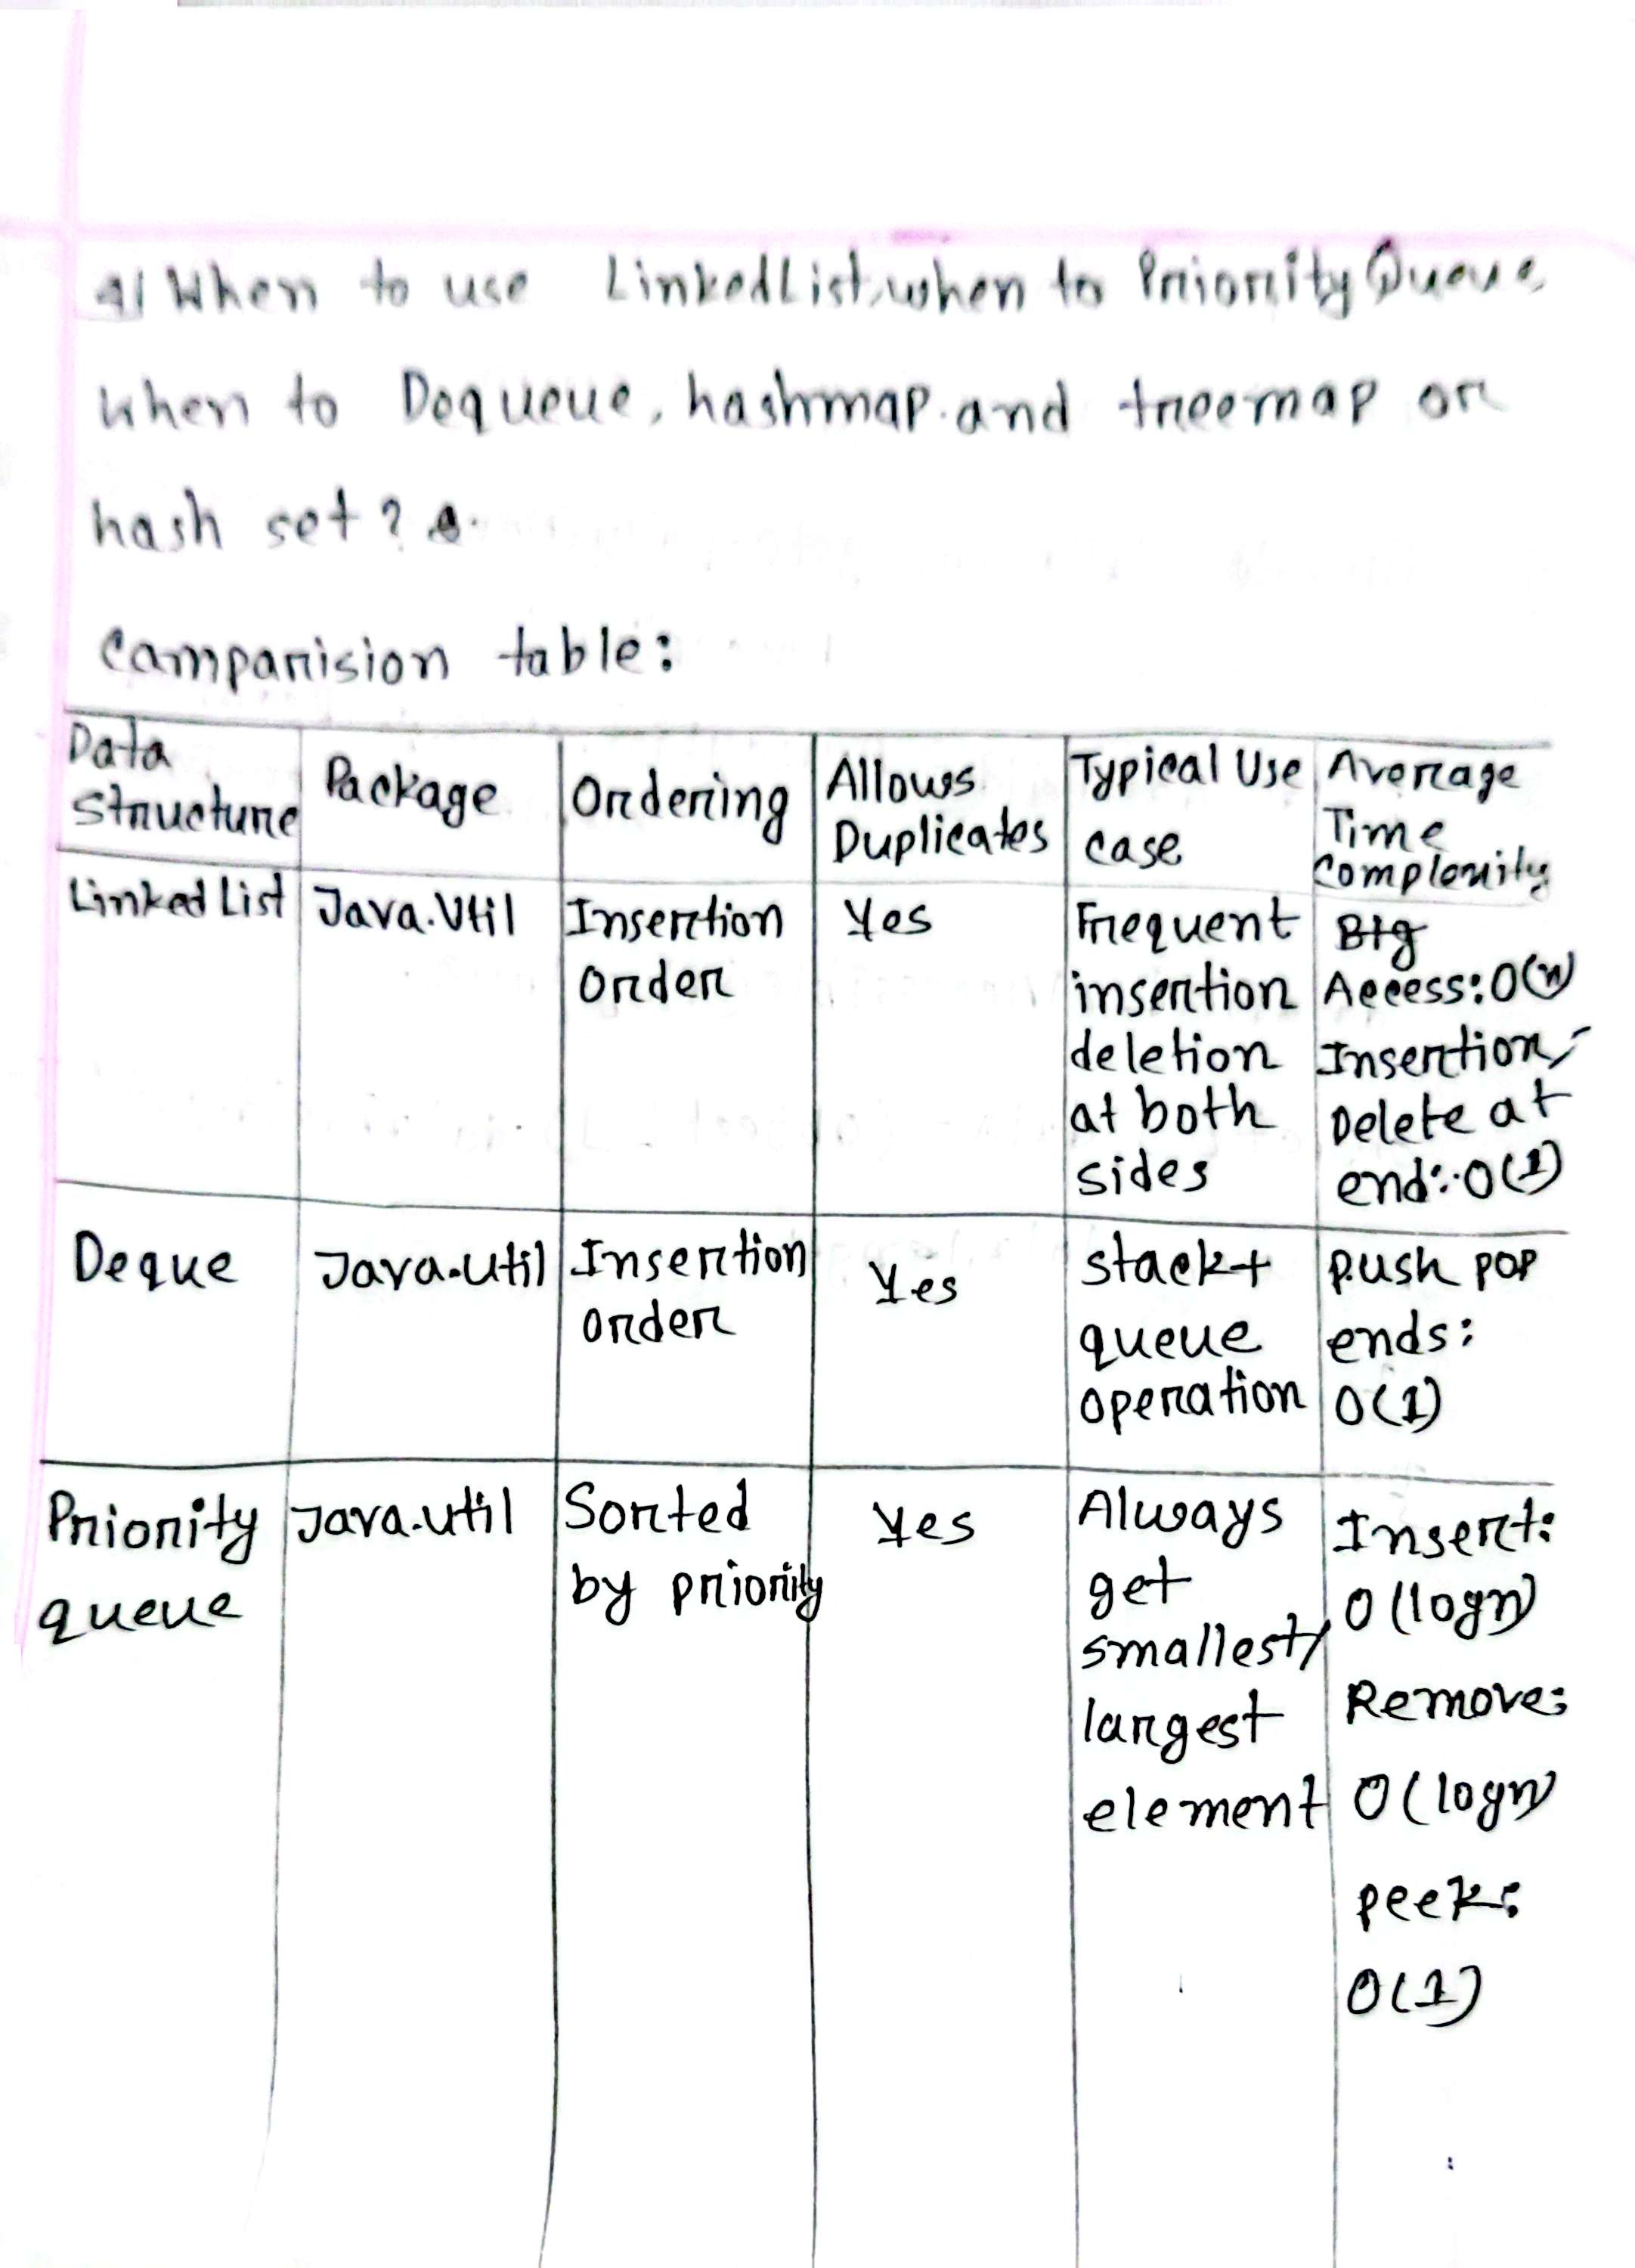 4| When to use LinkedList, when to PriorityQueue,
when to Dequeue, hashmap. and treemap or
hash set?
Camparision table:
Data Structure | Package | Ordering | Allows Duplicates | Typical Use case | Average Time Complexity
Linked List | Java.Util | Insertion Order | Yes | Frequent insertion deletion at both sides | Big Access: O(n) Insertion/ Delete at end: O(1)
Deque | Java.util | Insertion order | Yes | stack+ queue operation | push pop ends: O(1)
Priority queue | Java.util | Sorted by priority | Yes | Always get smallest/ largest element | Insert: O(logn) Remove: O(logn) peek: O(1)